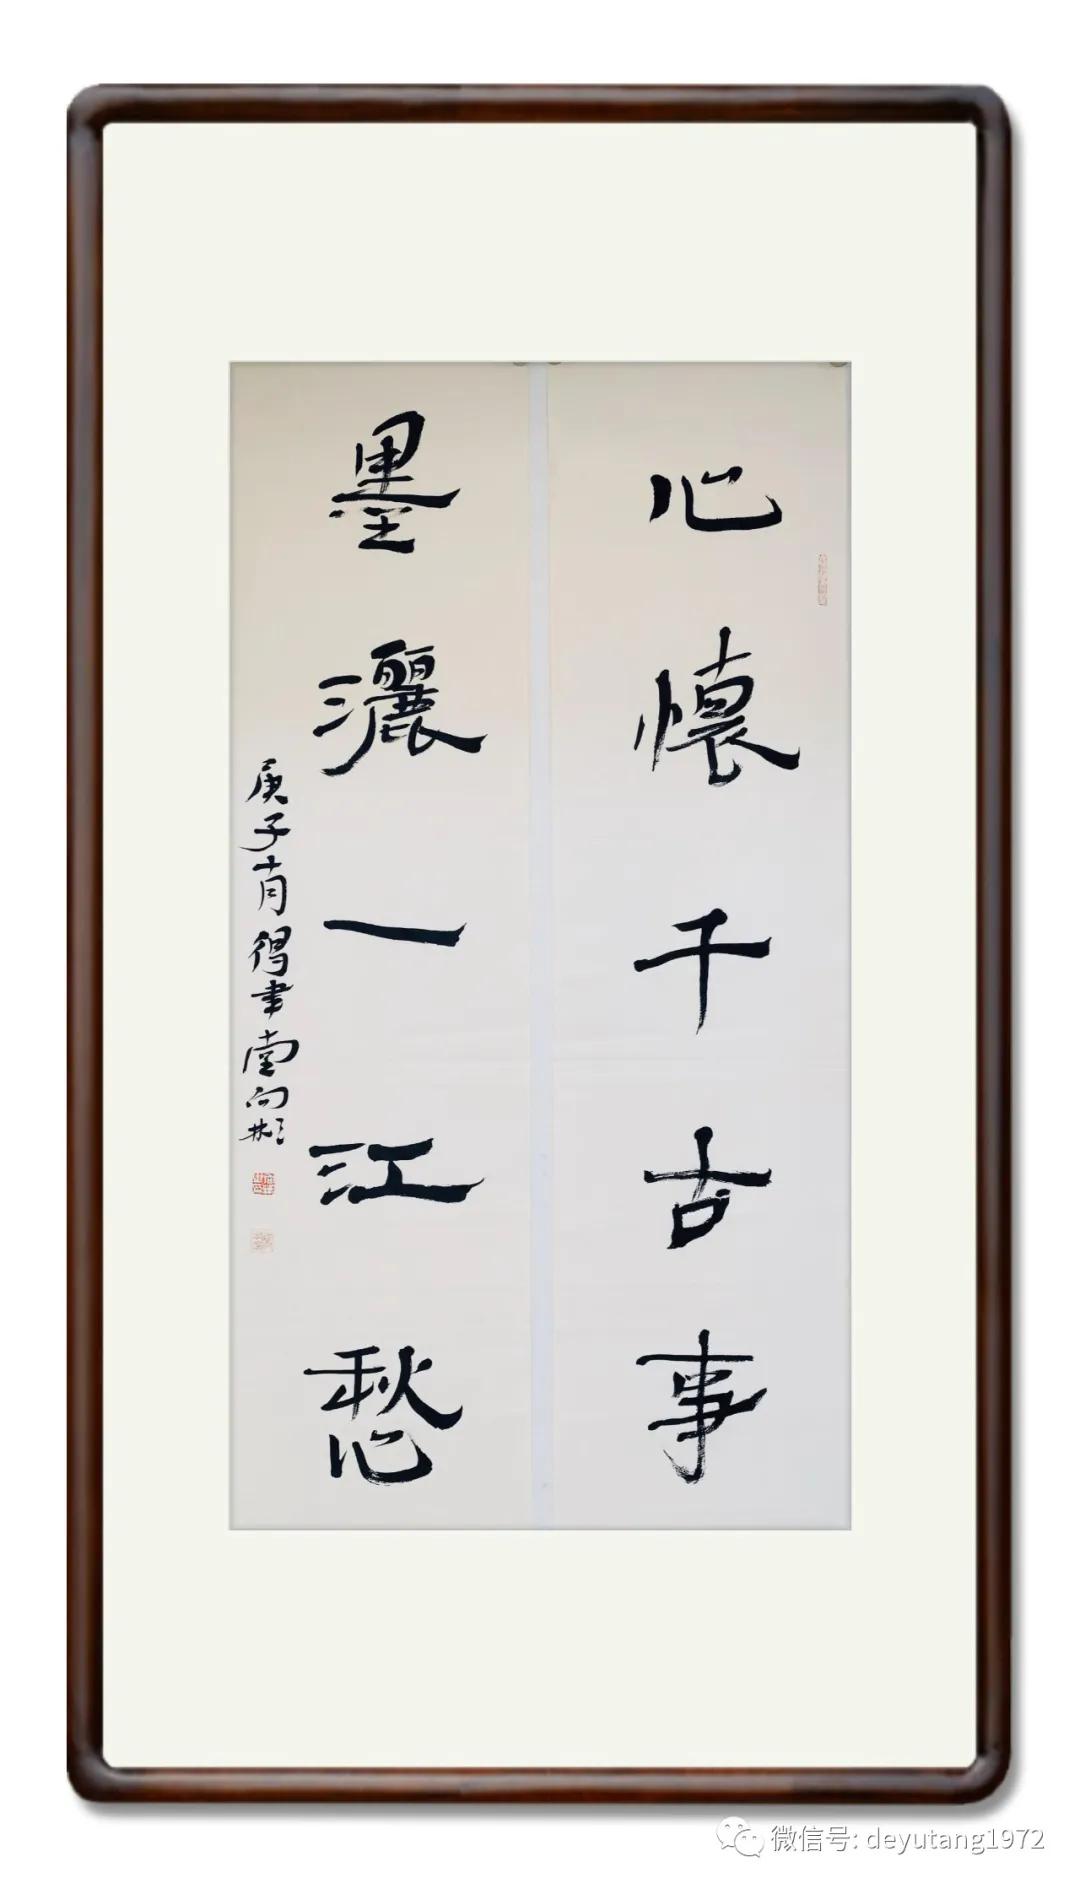 心懷千古事
墨灑一江愁
庚子十月得聿堂向彬
微信号: deyutang1972